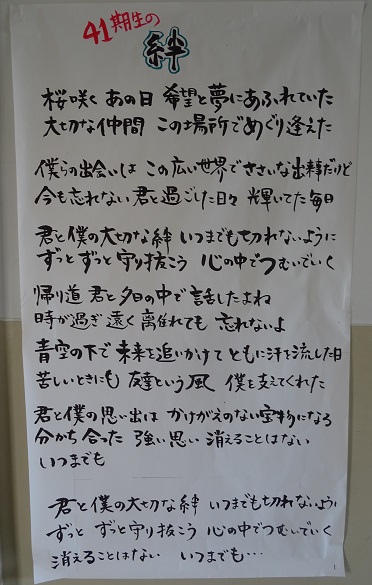 41期生の
絆
桜咲く あの日 希望と夢にあふれていた
大切な仲間 この場所でめぐり逢えた
僕らの出会いは この広い世界でささいな出来事だけど
今も忘れない 君と過ごした日々 輝いてた毎日
君と僕の大切な絆 いつまでも切れないように
ずっと ずっと守り抜こう 心の中でつむいでいく
帰り道 君と夕日の中で 話したよね
時が過ぎ 遠く 離れても 忘れないよ
青空の下で 未来を追いかけて ともに汗を流した日
苦しいときにも 友達という風 僕を支えてくれた
君と僕の思い出は かけがえのない宝物になる
分かち合った 強い思い 消えることはない
いつまでも
君と僕の大切な絆 いつまでも切れないように
ずっと ずっと守り抜こう 心の中でつむいでいく
消えることはない いつまでも…